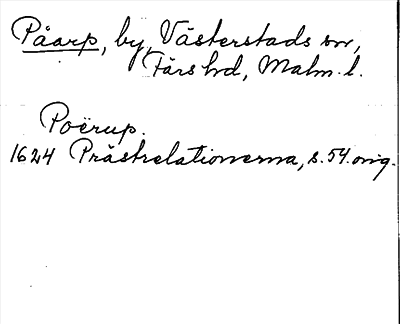 Påarp, by, Västerstads sn,
Färs hd, Malm. l.
Poërup.
1624 Prästrelationerna, s. 54. orig.